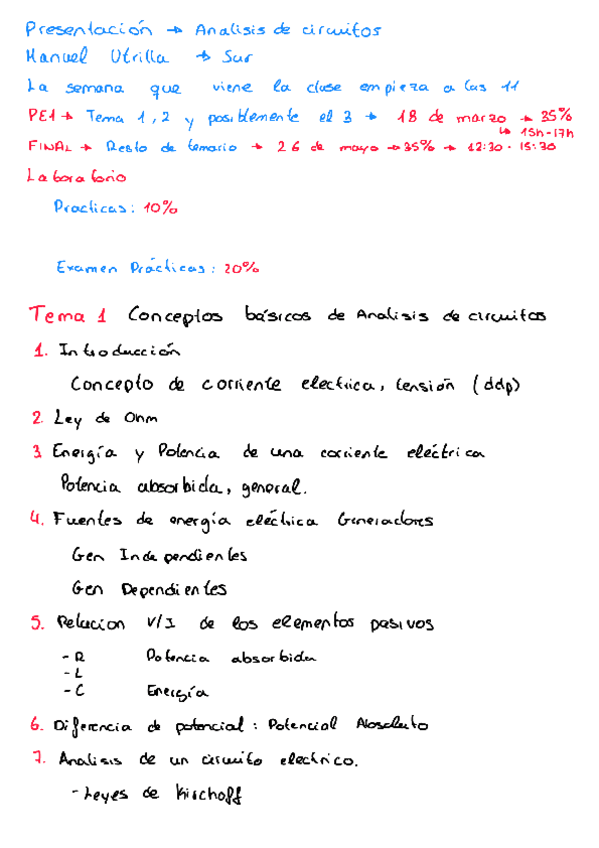 Presentación → Analisis de circuitos
Manuel Utrilla → Sur
La semana que viene la clase empieza a las 11
PE1 → Tema 1, 2 y posiblemente el 3 → 18 de marzo → 35%
↳ 15h-17h
FINAL → Resto de temario → 26 de mayo → 35% → 12:30 - 15:30
Laboratorio
Practicas: 10%
Examen Prácticas: 20%
Tema 1 Conceptos básicos de Analisis de circuitos
1. Introducción
Concepto de corriente electrica, tensión (ddp)
2. Ley de Ohm
3. Energía y Potencia de una corriente eléctrica
Potencia absorbida, general.
4. Fuentes de energía eléctrica Generadores
Gen Independientes
Gen Dependientes
5. Relacion V/I de los elementos pasivos
- R Potencia absorbida
- L
- C Energía
6. Diferencia de potencial : Potencial Absoluto
7. Analisis de un circuito electrico.
- Leyes de Kirchoff